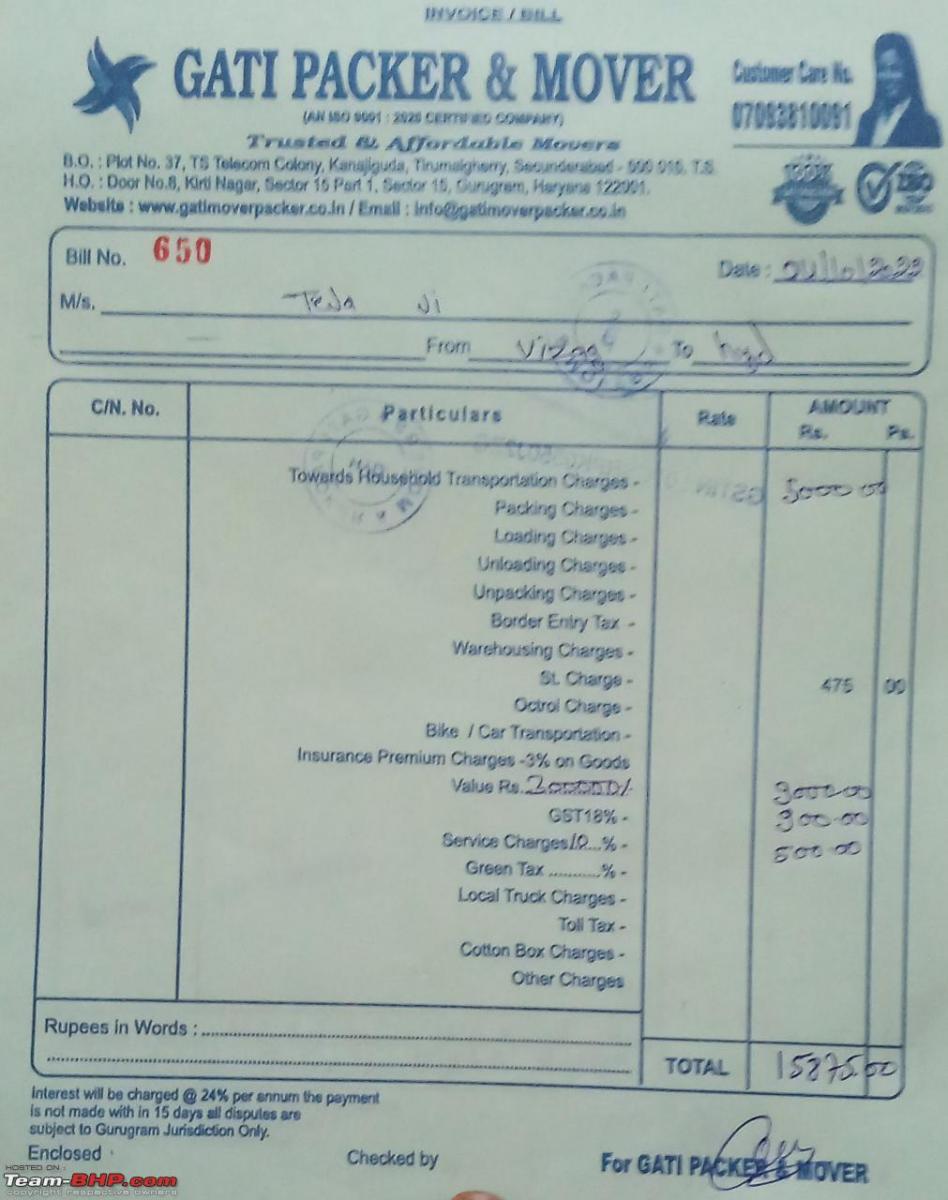 INVOICE / BILL
GATI PACKER & MOVER
Customer Care No.
07093810091
(AN ISO 9001 : 2020 CERTIFIED COMPANY)
Trusted & Affordable Movers
B.O. : Plot No. 37, TS Telecom Colony, Kanajiguda, Tirumalgherry, Secunderabad - 500 015. T.S.
H.O. : Door No.8, Kirti Nagar, Sector 15 Part 1, Sector 15, Gurugram, Haryana 122001.
Website : www.gatimoverpacker.co.in / Email : info@gatimoverpacker.co.in
100%
ISO
Bill No. 650
Date :
M/s. Teja Ji
From Vizag To hyd
C/N. No. Particulars Rate AMOUNT
Rs. Ps.
Towards Household Transportation Charges -
Packing Charges -
Loading Charges -
Unloading Charges -
Unpacking Charges -
Border Entry Tax -
Warehousing Charges -
St. Charge - 475 00
Octroi Charge -
Bike / Car Transportation -
Insurance Premium Charges -3% on Goods
Value Rs. 3000-00
GST18% - 900-00
Service Charges 10...% - 500-00
Green Tax ...........% -
Local Truck Charges -
Toll Tax -
Cotton Box Charges -
Other Charges
Rupees in Words :
TOTAL 15875.00
Interest will be charged @ 24% per annum the payment
is not made with in 15 days all disputes are
subject to Gurugram Jurisdiction Only.
Enclosed
Checked by
For GATI PACKER & MOVER
HOSTED ON :
Team-BHP.com
copyright respective owners